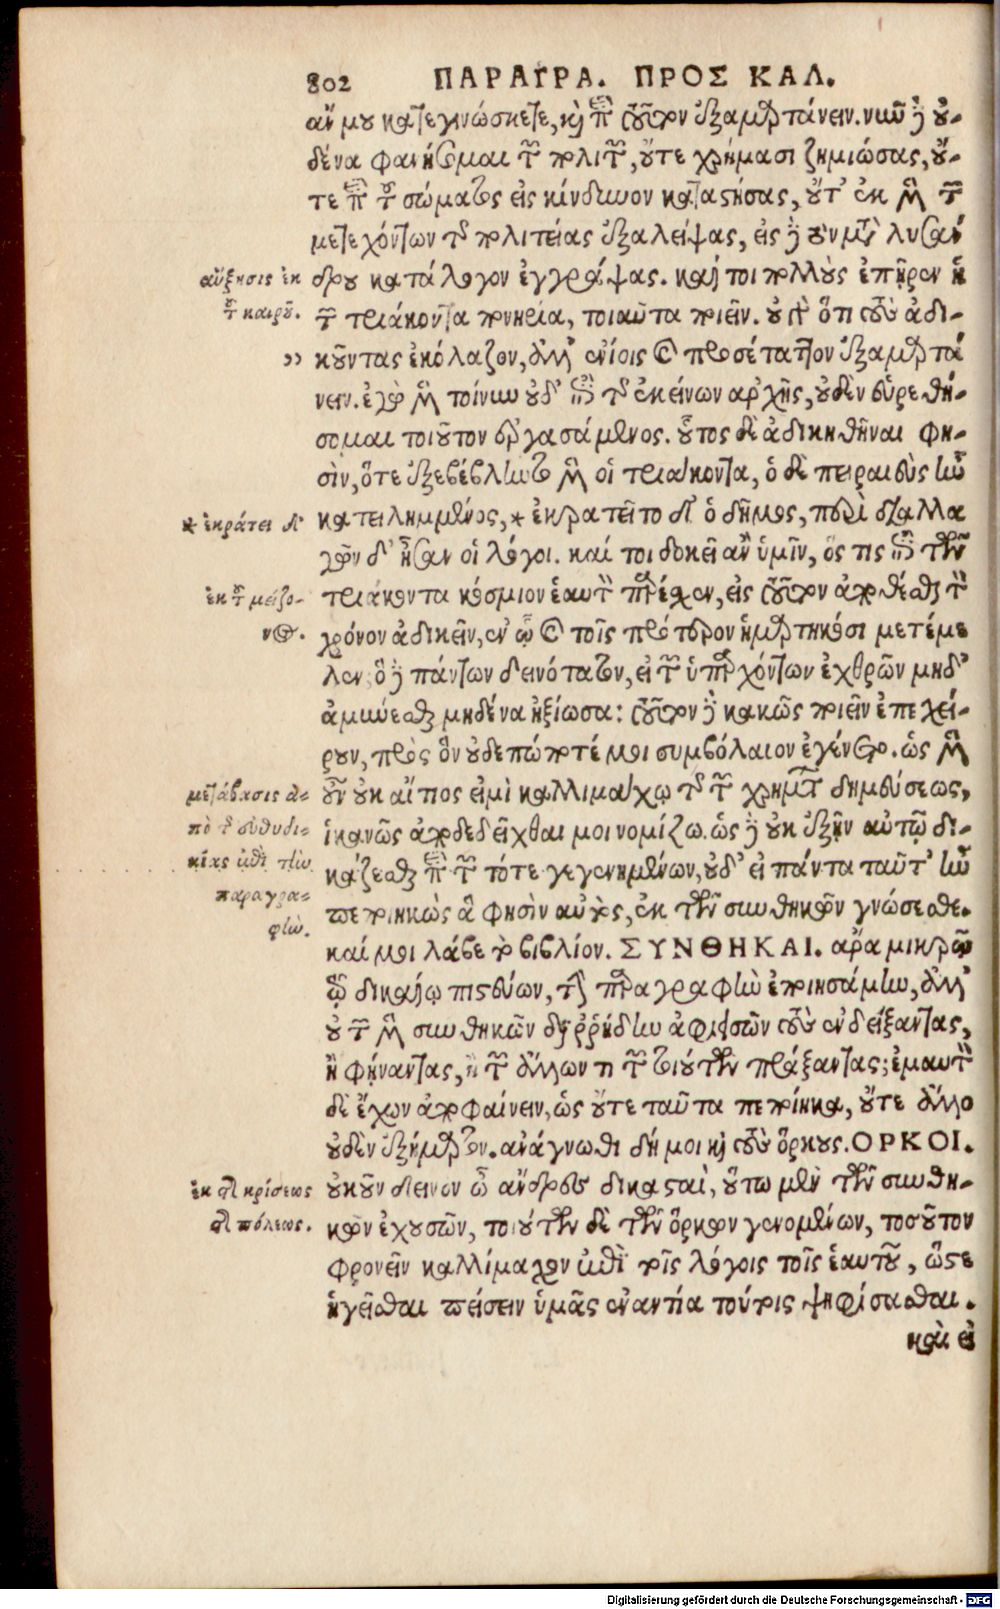 802 ΠΑΡΑΓΡΑ. ΠΡΟΣ ΚΑΛ.
ἄν μου κατεγινώσκετε, καὶ περὶ τούτων ἐξαμαρτάνειν. νῦν δὲ οὐ-
δένα φανήσομαι τῶν πολιτῶν, οὔτε χρήμασι ζημιώσας, οὔ-
τε περὶ τοῦ σώματος εἰς κίνδυνον καταστήσας, οὔτ' ἐκ μὲν τῶν
μετεχόντων τῆς πολιτείας ἐξαλείψας, εἰς δὲ τὸν μετὰ Λυσάν-
δρου κατάλογον ἐγγράψας. καίτοι πολλοὺς ἐπῆρεν ἡ
τῶν τριάκοντα πονηρία, τοιαῦτα ποιεῖν. οὐ γὰρ ὅτι τοὺς ἀδι-
κοῦντας ἐκόλαζον, ἀλλ' ἐνίοις καὶ προσέταττον ἐξαμαρτά-
νειν. ἐγὼ μὲν τοίνυν οὐδ' ἐπὶ τῆς ἐκείνων ἀρχῆς, οὐδὲν εὑρεθή-
σομαι τοιοῦτον ἐργασάμενος. οὗτος δὲ ἀδικηθῆναι φη-
σὶν, ὅτε ἐξεβέβληντο μὲν οἱ τριάκοντα, ὁ δὲ πειραιεὺς ἦν
κατειλημμένος, * ἐκρατεῖτο δ' ὁ δῆμος, περὶ διαλλα-
γῶν δ' ἦσαν οἱ λόγοι. καί τοι δοκεῖ ἂν ὑμῖν, ὅς τις ἐπὶ τῶν
τριάκοντα κόσμιον ἑαυτὸν παρέσχεν, εἰς τοῦτον ἀποθέσθαι τὸν
χρόνον ἀδικεῖν, ἐν ᾧ καὶ τοῖς πρότερον ἡμαρτηκόσι μετέμε-
λεν; ὃ δὲ πάντων δεινότατον, εἰ τῶν ὑπαρχόντων ἐχθρῶν μηδ'
ἀμύνεσθαι μηδένα ἠξίωσα: τοῦτον δὲ κακῶς ποιεῖν ἐπεχεί-
ρουν, πρὸς ὃν οὐδεπώποτέ μοι συμβόλαιον ἐγένετο. ὡς μὲν
οὖν οὐκ αἴτιος εἰμὶ Καλλιμάχῳ τῆς τῶν χρημάτων δημεύσεως,
ἱκανῶς ἀποδεδεῖχθαι μοι νομίζω. ὡς δὲ οὐκ ἐξῆν αὐτῷ δι-
κάζεσθαι περὶ τῶν τότε γεγενημένων, οὐδ' εἰ πάντα ταῦτ' ἦν
πεποιηκὼς ἅ φησὶν αὐτὸς, ἐκ τῶν συνθηκῶν γνώσεσθε.
καί μοι λάβε τὸ βιβλίον. ΣΥΝΘΗΚΑΙ. ἆρα μικρῷ
τῷ δικαίῳ πιστεύων, τὴν παραγραφὴν ἐποιησάμην, ἀλλ'
οὐ τῶν μὲν συνθηκῶν διαρρήδην ἀφιεισῶν τοὺς ἐνδείξαντας,
ἢ φήναντας, ἢ τῶν ἄλλων τι τῶν τοιούτων πράξαντας; ἐμαυτὸν
δὲ ἔχων ἀποφαίνειν, ὡς οὔτε ταῦτα πεποίηκα, οὔτε ἄλλο
οὐδὲν ἐξήμαρτον. ἀνάγνωθι δή μοι καὶ τοὺς ὅρκους. ΟΡΚΟΙ.
οὐκοῦν δεινὸν ὦ ἄνδρες δικασταὶ, οὕτω μὲν τῶν συνθη-
κῶν ἐχουσῶν, τοιούτων δὲ τῶν ὅρκων γενομένων, τοσοῦτον
φρονεῖν Καλλίμαχον ἐπὶ τοῖς λόγοις τοῖς ἑαυτοῦ, ὥστε
ἡγεῖσθαι πείσειν ὑμᾶς ἐναντία τούτοις ψηφίσασθαι.
καὶ εἰ
αὔξησις ἐκ
τοῦ καιροῦ.
"
* ἐκράτει δ'
ἐκ τοῦ μείζο-
νος.
μετάβασις ἀ-
πὸ τῆς εὐθυδι-
κίας ἐπὶ τὴν
παραγρα-
φήν.
ἐκ τῆς κρίσεως
τῆς πόλεως.
Digitalisierung gefördert durch die Deutsche Forschungsgemeinschaft - DFG